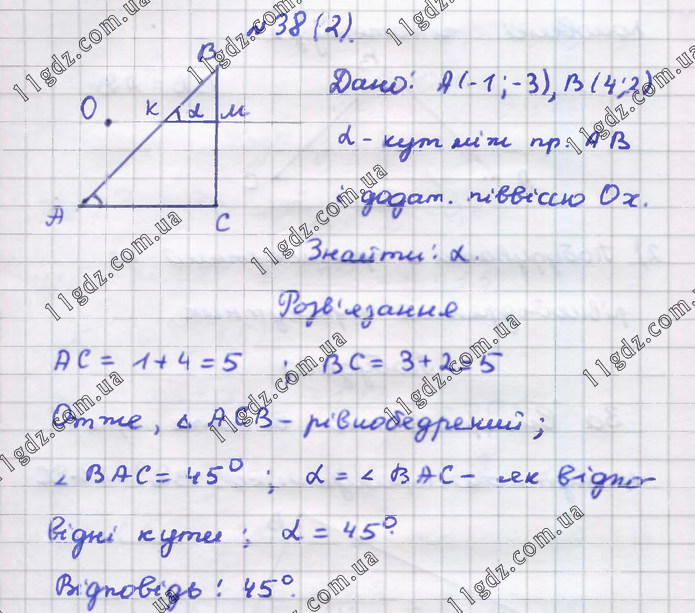 №38(2).
Дано: A(-1;-3), B(4;2)
α - кут між пр. AB
і додат. піввіссю Ox.
Знайти: α.
B
O
K
α
M
A
C
Розв'язання
AC = 1+4=5 ; BC = 3+2=5
Отже, △ ACB - рівнобедрений;
∠ BAC = 45°; α = ∠ BAC - як відпо-
відні кути; α = 45°.
Відповідь: 45°.
11gdz.com.ua
11gdz.com.ua
11gdz.com.ua
11gdz.com.ua
11gdz.com.ua
11gdz.com.ua
11gdz.com.ua
11gdz.com.ua
11gdz.com.ua
11gdz.com.ua
11gdz.com.ua
11gdz.com.ua